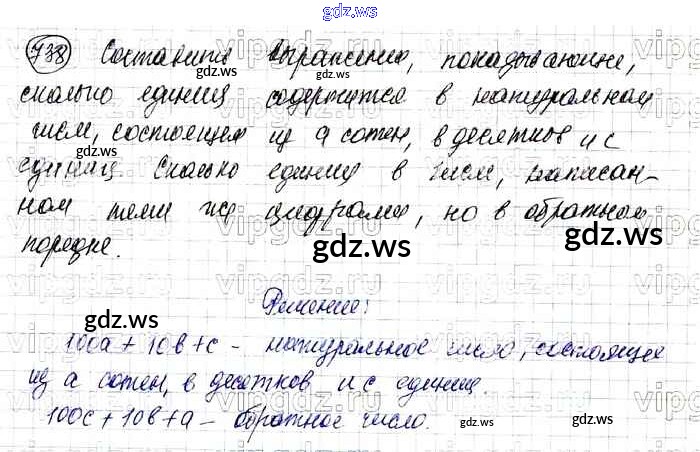 gdz.ws
738 Составить выражение, показывающие,
сколько единиц содержится в натуральном
числе, состоящем из a сотен, b десятков и c
единиц. Сколько единиц в числе, написан-
ном теми же цифрами, но в обратном
порядке.
Решение:
100a + 10b + c - натуральное число, состоящее
из a сотен, b десятков и c единиц.
100c + 10b + a - обратное число.